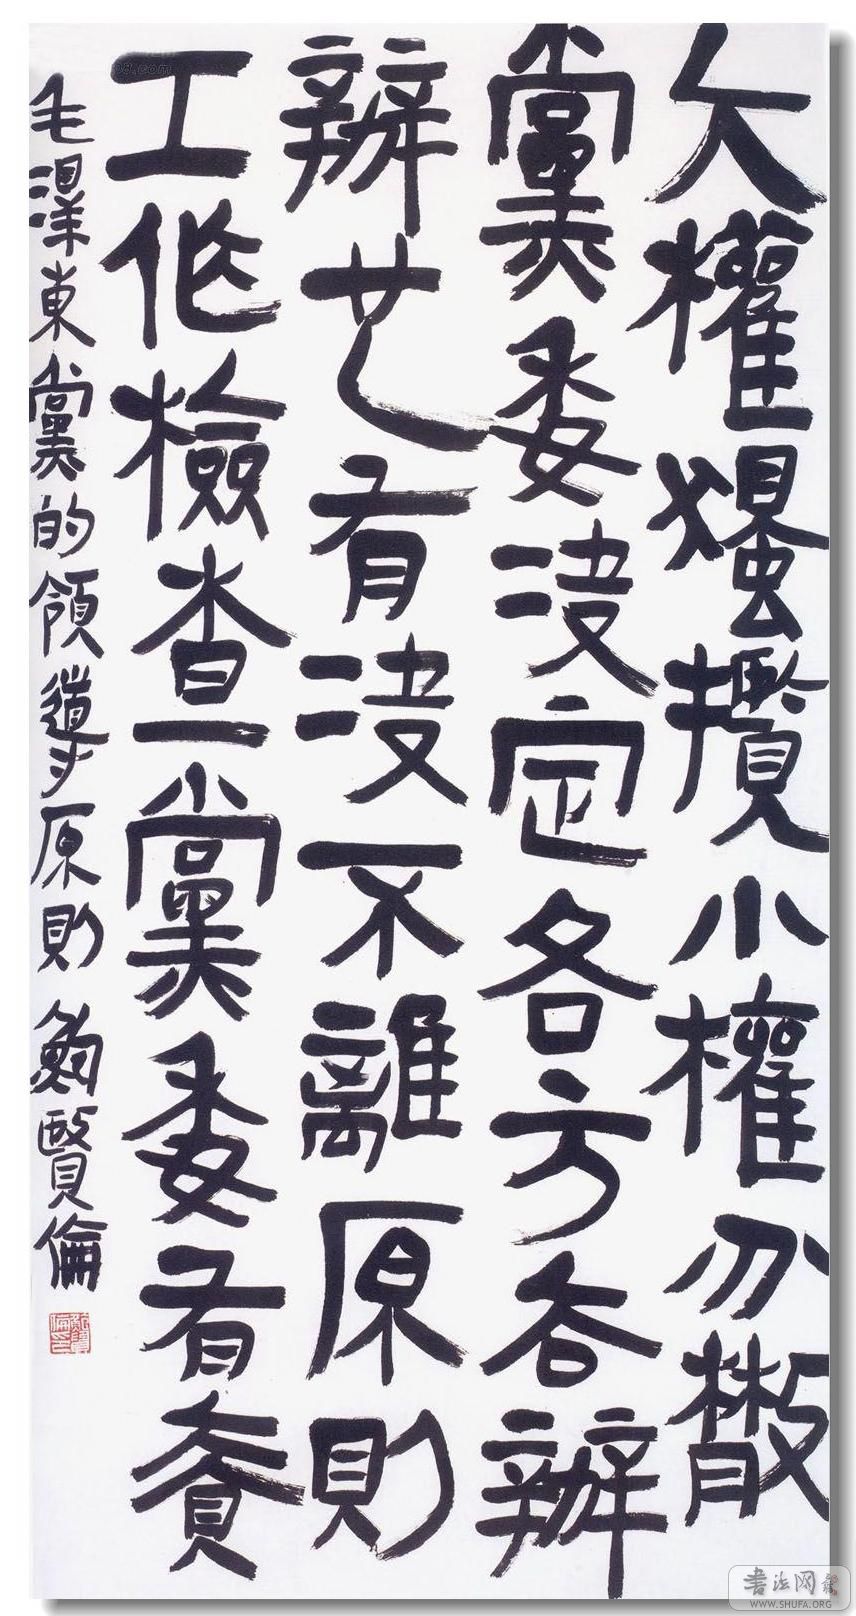 大權獨攬小權分散
黨委决定各方去辦
辦也有决不離原則
工作檢查黨委有責
毛澤東黨的領導原則 鮑賢倫
書法网
WWW.SHUFA.ORG